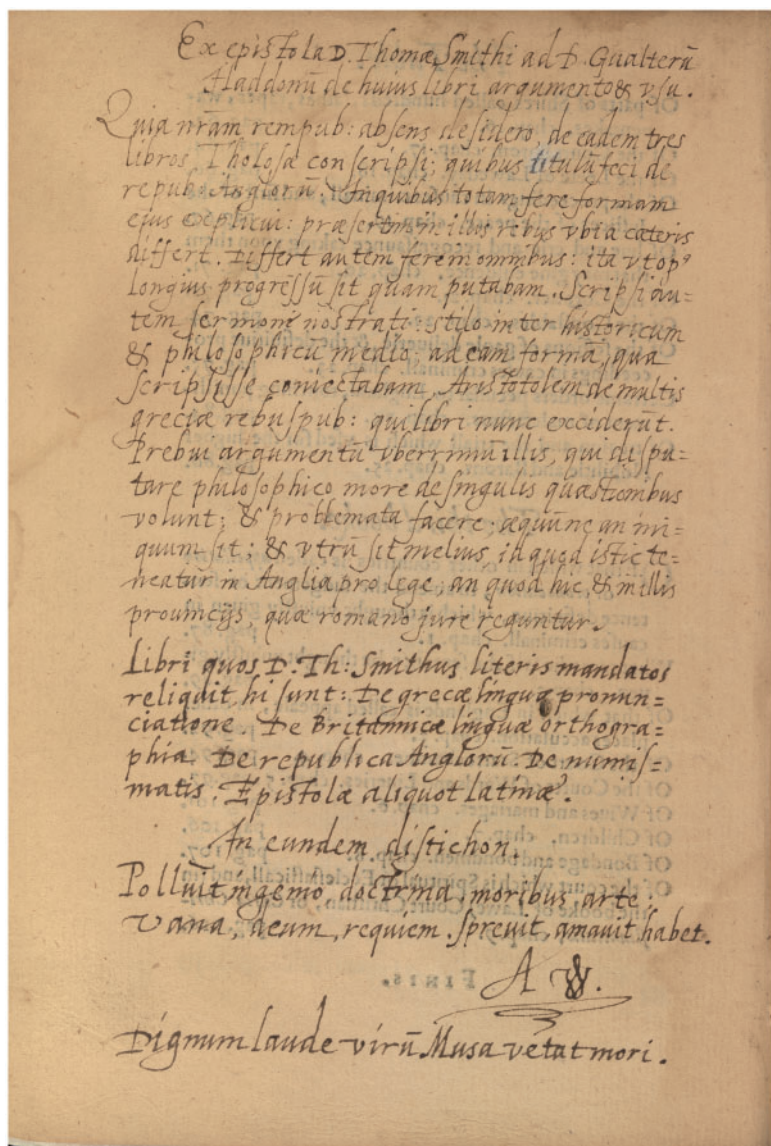 Ex epistola D. Thomæ Smithi ad D. Gualterū
Haddonū de huius libri argumento & usu.
Quia nr̄am rempub: absens desidero, de eadem tres
libros Tholosæ conscripsi; quibus titulū feci de
repub: Anglorū. In quibus totam fere formam
ejus explicui: præsertim in illis rebus ubi a cæteris
differt. Differt autem fere in omnibus: ita ut op9
longius progressū sit quam putabam. Scripsi au=
tem sermone nostrati: stilo inter historicum
& philosophicū medio, ad eam formā, qua
scripsisse coniectabam, Aristotolem de multis
greciæ rebuspub: qui libri nunc exciderūt.
Prebui argumentū vberrimū illis, qui dispu=
tare philosophico more de singulis quæstionibus
volunt; & problemata facere; æquūne an ini=
quum sit; & vtrū sit melius, id quod istic te=
neatur in Anglia pro lege, an quod hic, & in illis
prouincijs, quæ romano jure reguntur.
Libri quos D. Th: Smithus literis mandatos
reliquit, hi sunt: De grecæ linguæ pronun=
ciatione. De Britannicæ linguæ orthogra=
phia. De republica Anglorū. De numis=
matis. Epistolæ aliquot latinæ.
In eundem distichon.
Polluit ingenio, doctrina, moribus, arte:
Vana, deum, requiem. sprevit, amauit habet.
A W.
Dignum laude virū Musa vetat mori.